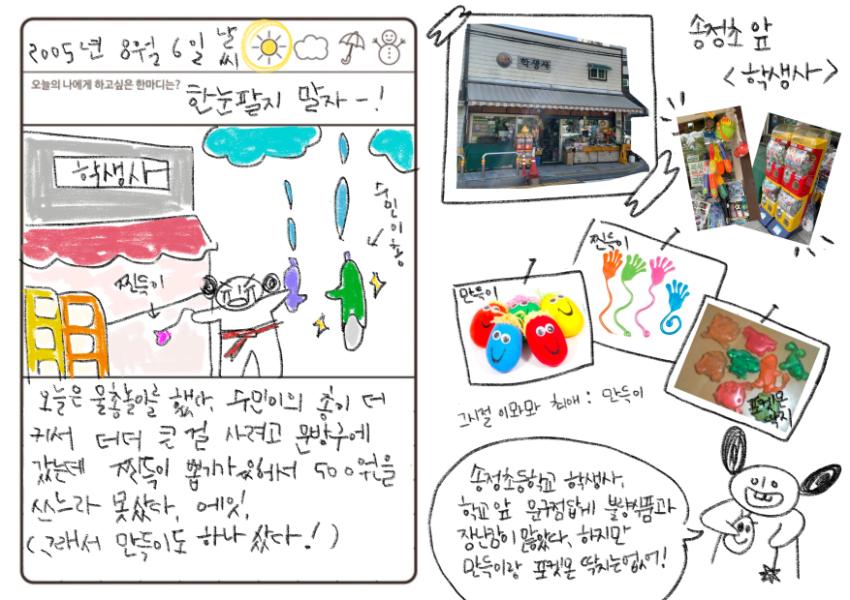 2005년 8월 6일 날씨
오늘의 나에게 하고싶은 한마디는?
한눈팔지 말자-!
학생사
찐득이
수민이총
오늘은 물총놀이를 했다. 수민이의 총이 더
커서 더더 큰 걸 사려고 문방구에
갔는데 찐득이 뽑기가 있어서 500원을
쓰느라 못샀다. 에잇.
(그래서 만득이도 하나 샀다!)
송정초 앞
<학생사>
학생사
찐득이
만득이
포켓몬
딱지
그시절 이와와 최애 : 만득이
송정초등학교 학생사.
학교 앞 문구점답게 불량식품과
장난감이 많았다. 하지만
만득이랑 포켓몬 딱지는없어!